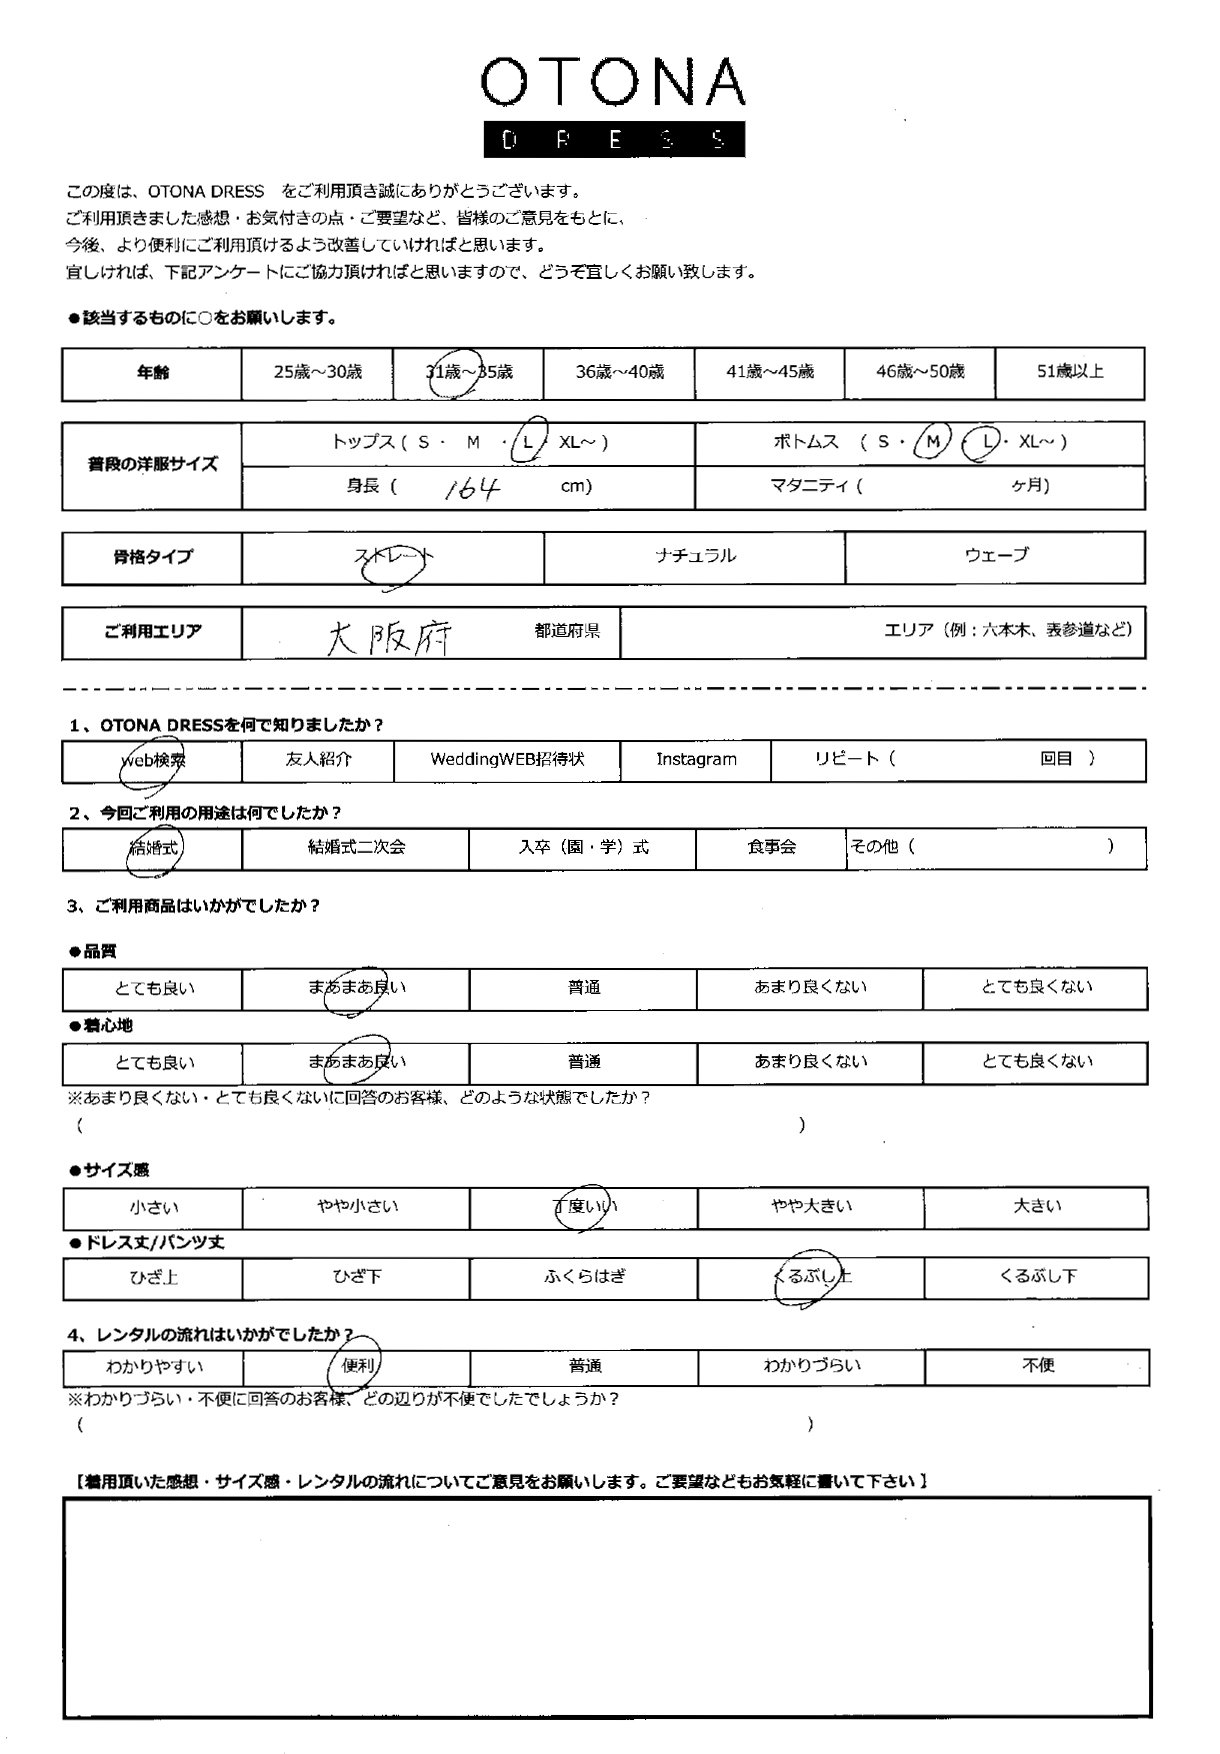 OTONA
DRESS
この度は、OTONA DRESS をご利用頂き誠にありがとうございます。
ご利用頂きました感想・お気付きの点・ご要望など、皆様のご意見をもとに、
今後、より便利にご利用頂けるよう改善していければと思います。
宜しければ、下記アンケートにご協力頂ければと思いますので、どうぞ宜しくお願い致します。
●該当するものに○をお願いします。
年齢 25歳～30歳 31歳～35歳 36歳～40歳 41歳～45歳 46歳～50歳 51歳以上
普段の洋服サイズ トップス ( S ・ M ・ L ・ XL～ ) ボトムス ( S ・ M ・ L ・ XL～ )
身長 ( 164 cm) マタニティ ( ヶ月)
骨格タイプ ストレート ナチュラル ウェーブ
ご利用エリア 大阪府 都道府県 エリア（例：六本木、表参道など）
1、OTONA DRESSを何で知りましたか？
web検索 友人紹介 WeddingWEB招待状 Instagram リピート（ 回目 ）
2、今回ご利用の用途は何でしたか？
結婚式 結婚式二次会 入卒（園・学）式 食事会 その他（ ）
3、ご利用商品はいかがでしたか？
●品質
とても良い まあまあ良い 普通 あまり良くない とても良くない
●着心地
とても良い まあまあ良い 普通 あまり良くない とても良くない
※あまり良くない・とても良くないに回答のお客様、どのような状態でしたか？
( )
●サイズ感
小さい やや小さい 丁度いい やや大きい 大きい
●ドレス丈/パンツ丈
ひざ上 ひざ下 ふくらはぎ くるぶし上 くるぶし下
4、レンタルの流れはいかがでしたか？
わかりやすい 便利 普通 わかりづらい 不便
※わかりづらい・不便に回答のお客様、どの辺りが不便でしたでしょうか？
( )
【着用頂いた感想・サイズ感・レンタルの流れについてご意見をお願いします。ご要望などもお気軽に書いて下さい】